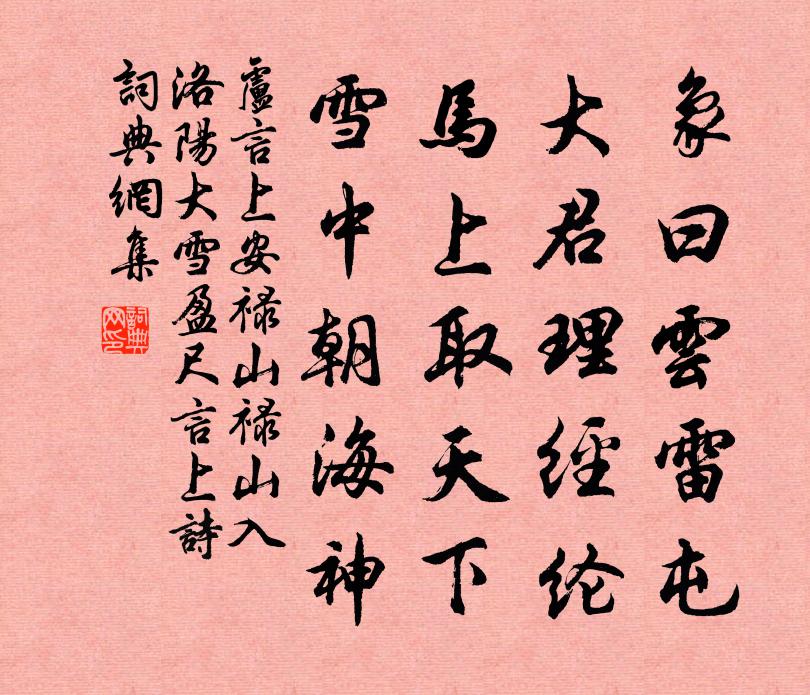 象曰雲雷屯
大君理經纶
馬上取天下
雪中朝海神
盧言上安禄山禄山入
洛陽大雪盈尺言上詩
詞典網集
詞典网印